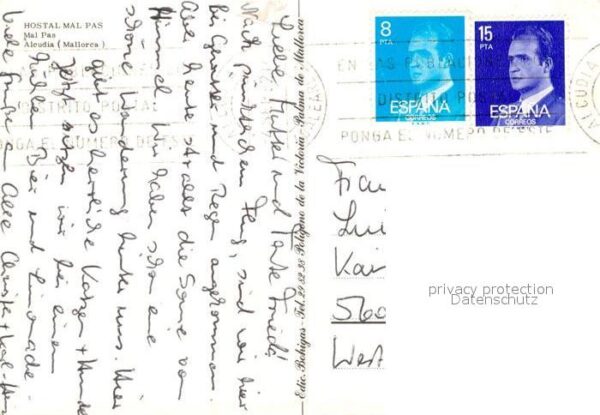 HOSTAL MAL PAS
Mal Pas
Alcudia (Mallorca)
8
PTA
ESPAÑA
CORREOS
15
PTA
ESPAÑA
CORREOS
EN LAS POBLACIONES
DISTRITO POSTAL
PONGA EL NUMERO DE ESTE
ALCUDIA
DISTRITO POSTAL
PONGA EL NUMERO DE ESTE
Liebe und Tante Friedl
Nach pünktlichem Flug, sind wir hier
bei Gewitter und Regen angekommen.
Aber heute ist alles die Sonne vom
Himmel. Wir haben schon eine
schöne Wanderung hinter uns. Hier
gibt es herrliche Katzen + Hunde
Jetzt sitzen wir bei einem
Bier und Limonade
Viele Grüße Alle Christa +
Edic. Bohigas - Tel. 27 52 38 Polígono de la Victoria - Palma de Mallorca
Frau
Lui
Kai
560
West
privacy protection
Datenschutz